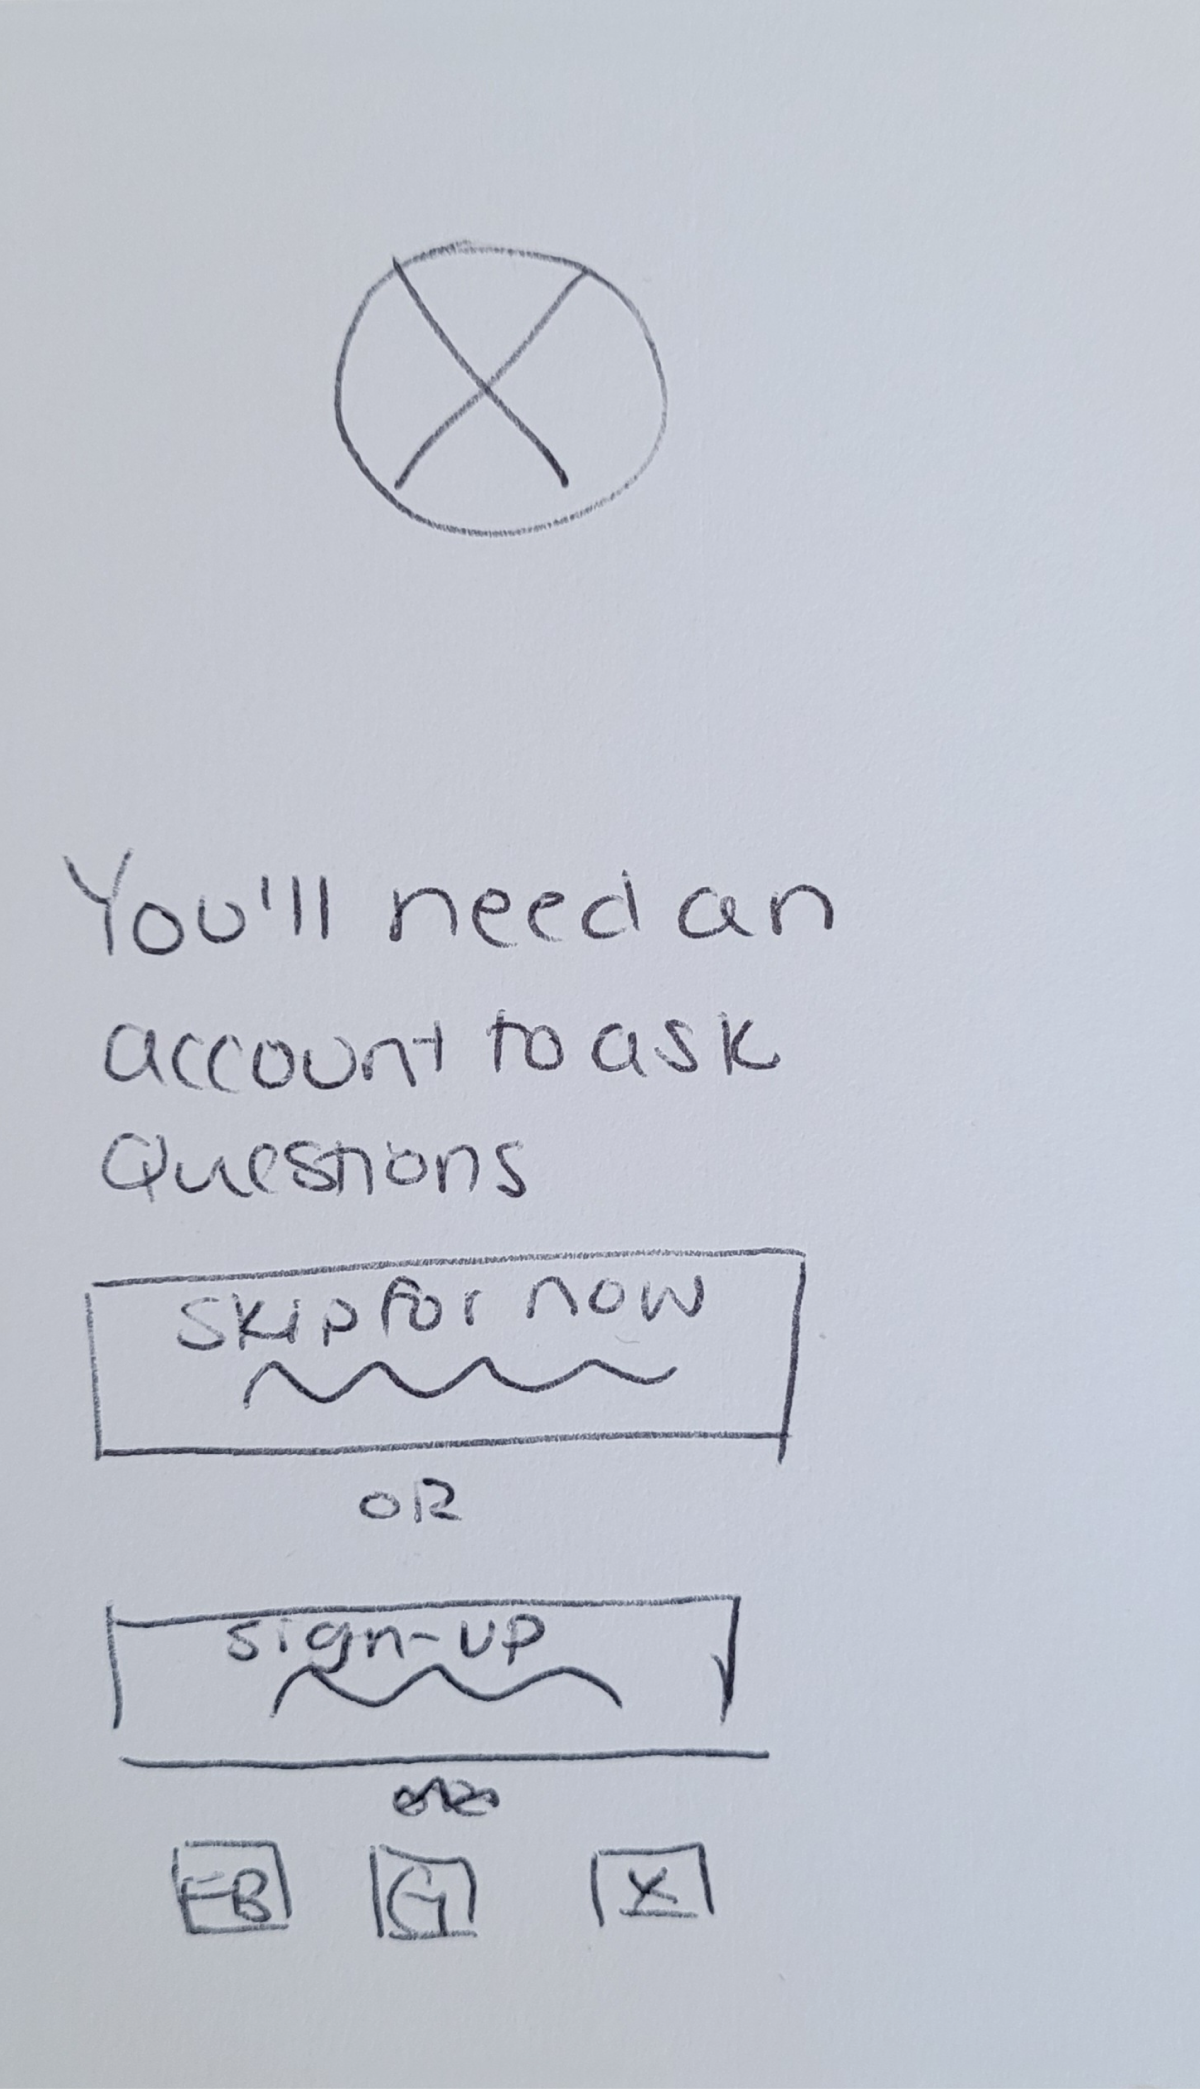 You'll need an
account to ask
Questions
Skip for now
OR
sign-up
FB G X